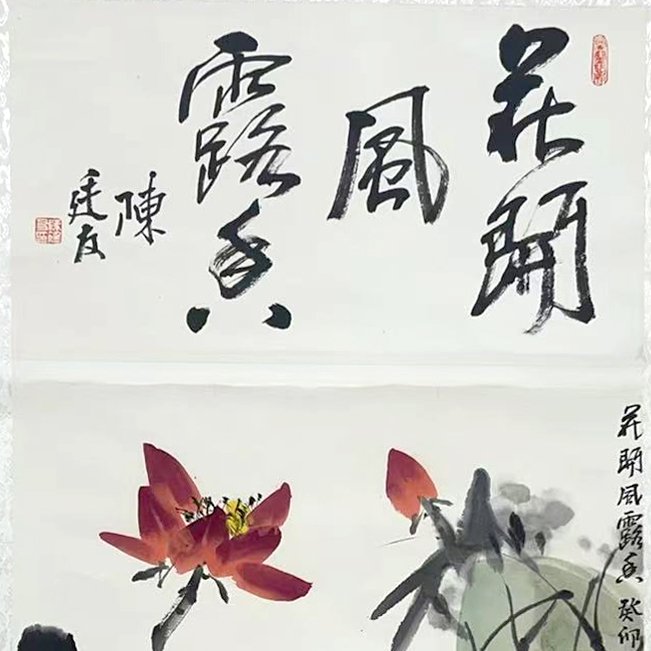 花開
風
露香
陳
廷友
花開風露香 癸卯